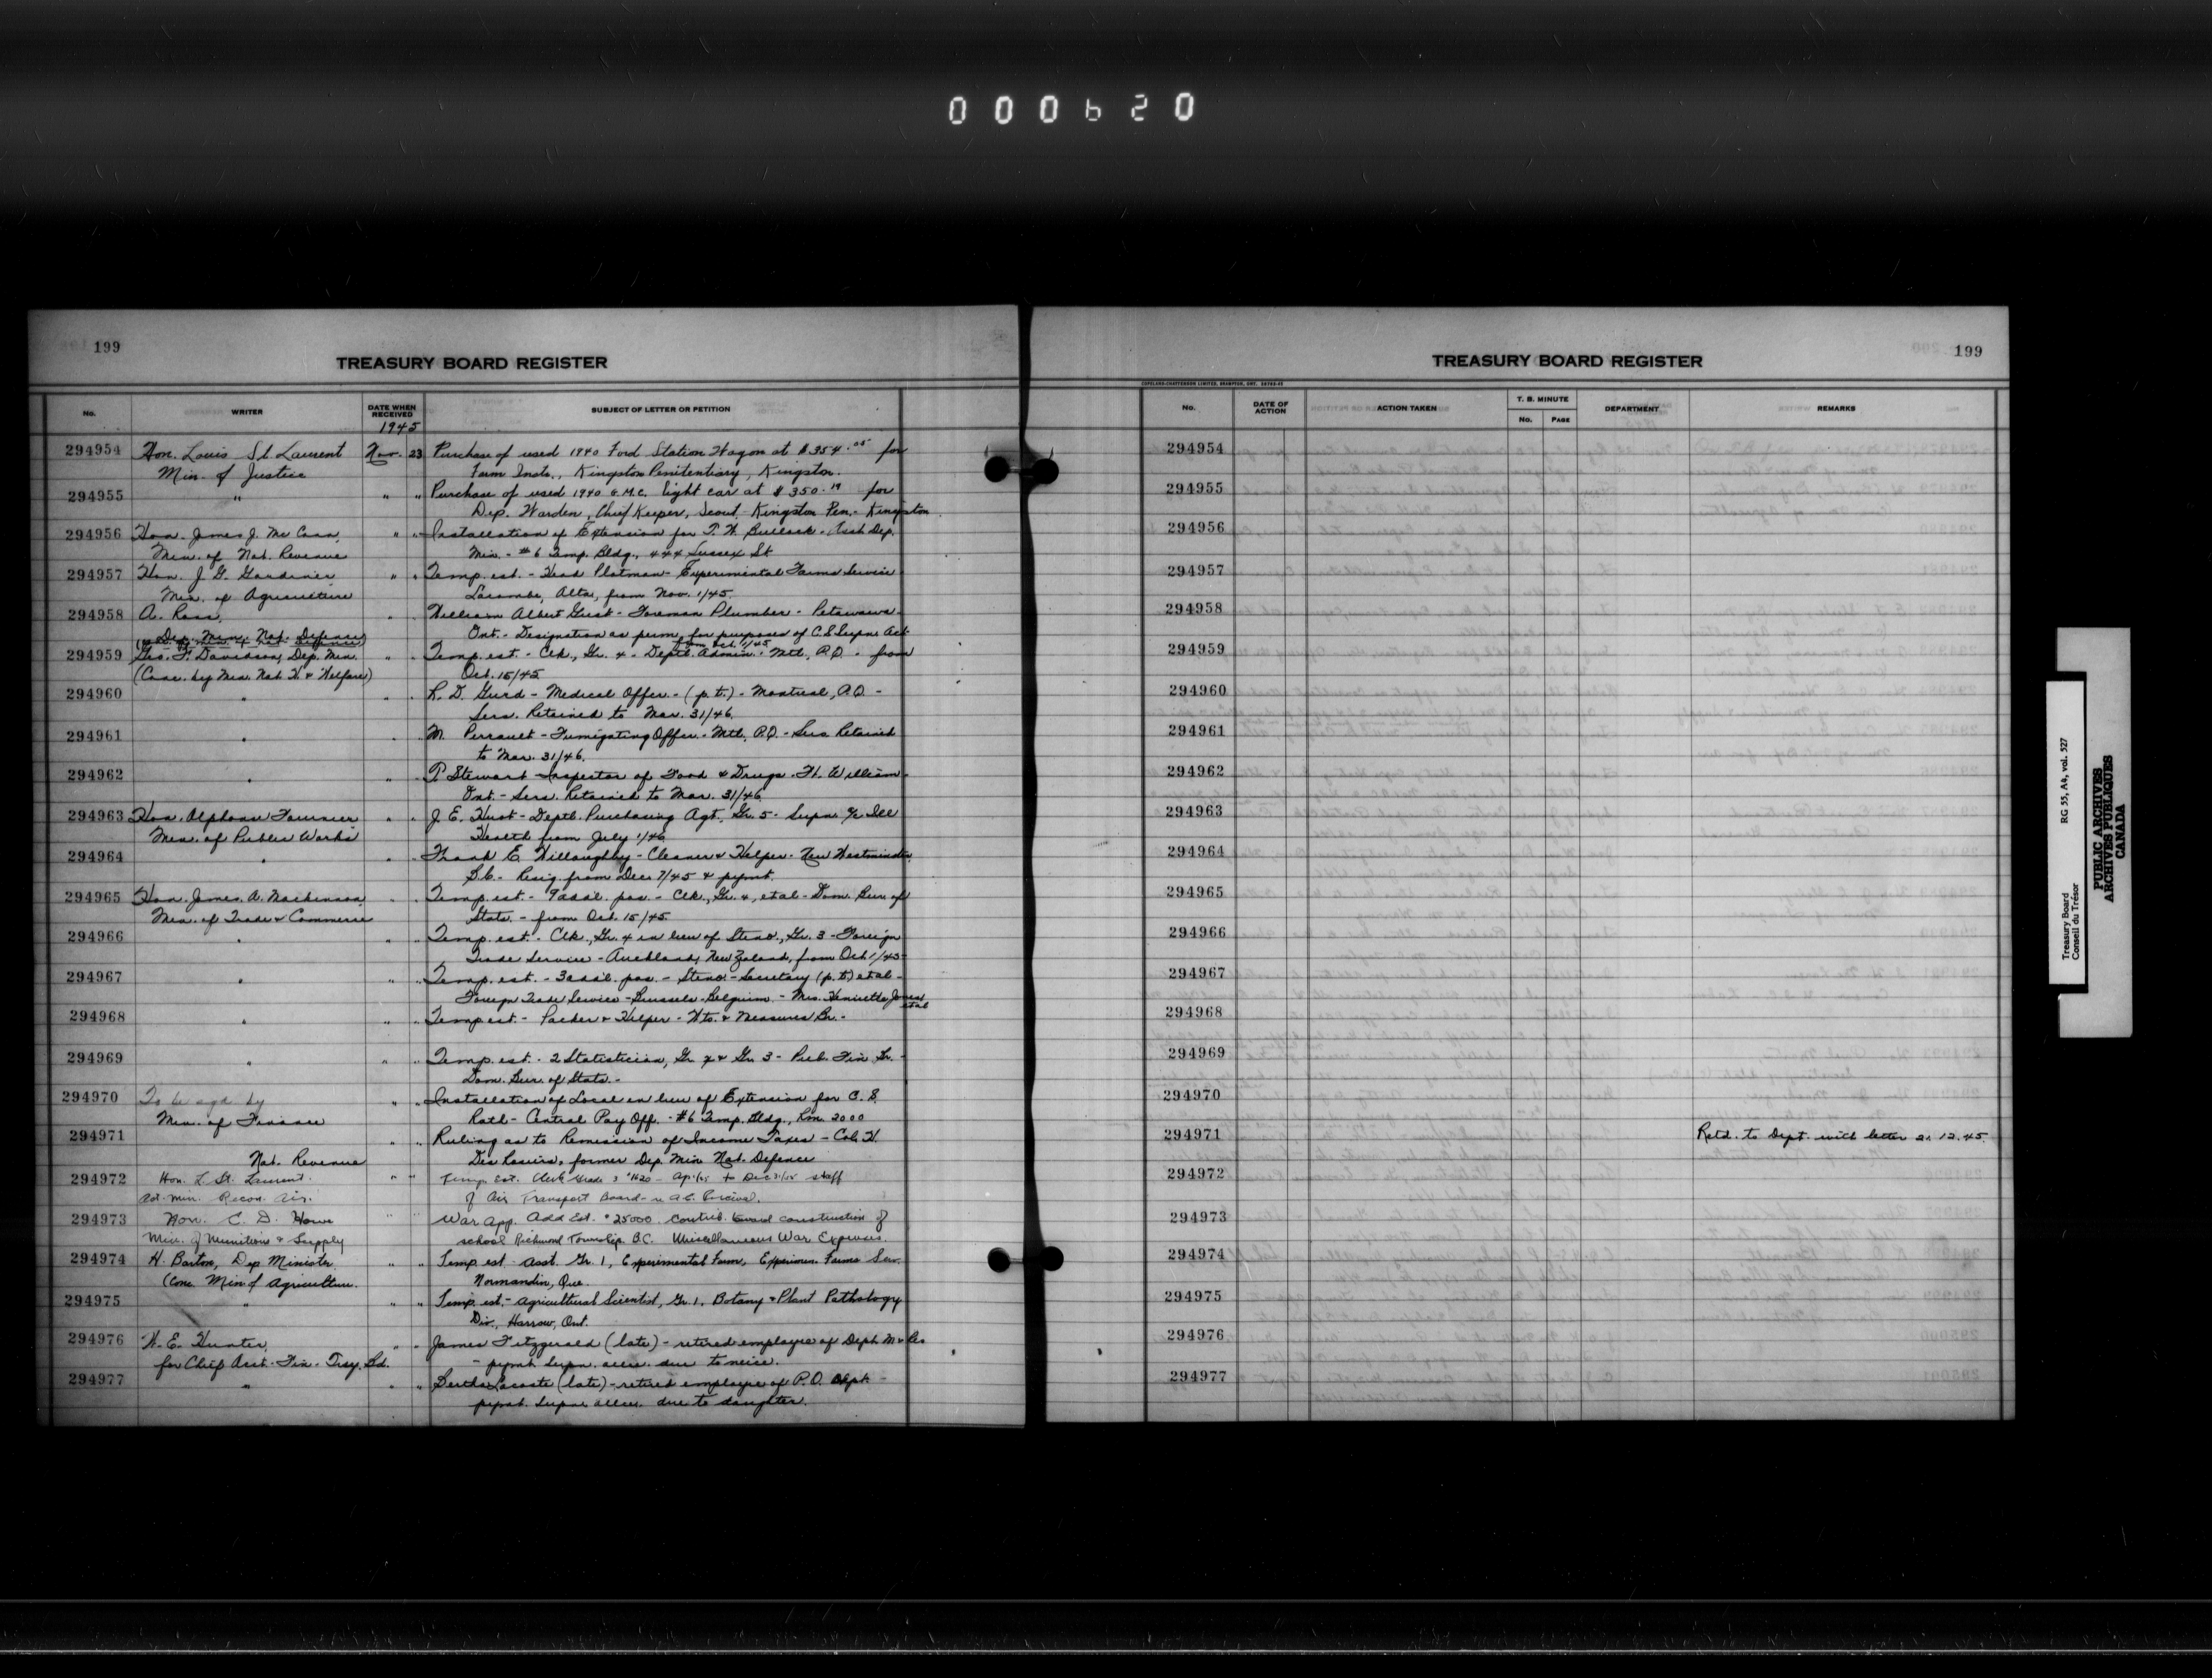 000620
199
TREASURY BOARD REGISTER
No. WRITER DATE WHEN RECEIVED SUBJECT OF LETTER OR PETITION
1945
294954 Hon. Louis St. Laurent Nov. 23 Purchase of used 1940 Ford Station Wagon at $354.05 for
Min. of Justice Farm Insts., Kingston Penitentiary, Kingston.
294955 " " " Purchase of used 1940 G.M.C. light car at $350.19 for
Dep. Warden, Chief Keeper, Scout - Kingston Pen. - Kingston.
294956 Hon. James J. McCann, " " Installation of Extension for T. N. Bullock - Asst Dep.
Min. of Nat. Revenue Min. - #6 Temp. Bldg., 444 Sussex St
294957 Hon. J. G. Gardiner " " Temp. est. - Head Plotman - Experimental Farms Service
Min. of Agriculture Lacombe, Alta, from Nov. 1/45.
294958 A. Ross, " William Albert Gust - Foreman Plumber - Petawawa
Dep. Min. Nat. Defence Ont. - Designation as perm. for purposes of C.S. Supns Act
from Oct. 1/45
294959 Geo. F. Davidson, Dep. Min. " " Temp. est. - Clk., Gr. 4 - Deptl. Admin. - Mtl, P.Q. - from
(Conc. by Min. Nat. H. & Welfare) Oct. 15/45
294960 " " " R. D. Gurd - Medical Offcr. - (p.t.) - Montreal, P.Q. -
Sers. Retained to Mar. 31/46.
294961 " " " M. Perrault - Fumigating Offcr. - Mtl, P.Q. - Sers Retained
to Mar. 31/46.
294962 " " " P Stewart - Inspector of Food & Drugs - Ft. William
Ont. - Sers. Retained to Mar. 31/46
294963 Hon. Alphonse Fournier " " J. E. Hunt - Deptl. Purchasing Agt., Gr. 5 - Supn. a/c Ill
Min. of Public Works Health from July 1/46
294964 " " " Frank E. Willoughby - Cleaner & Helper - New Westminster,
B.C. - Resig. from Dec 7/45 & pymt.
294965 Hon. James A. Mackinnon, " " Temp. est. - 9 addl. pos. - Clk., Gr. 4, etal - Dom. Bur. of
Min. of Trade & Commerce Stats. - from Oct. 15/45
294966 " " " Temp. est. - Clk., Gr. 4 in lieu of Steno., Gr. 3 - Foreign
Trade Service - Auckland, New Zealand, from Oct 1/45
294967 " " " Temp. est. - 3 addl. pos. - Steno. - Secretary (p.t.) etal -
Foreign Trade Service - Brussels - Belgium - Mrs. Henrietta Jones
etal
294968 " " " Temp. est. - Packer & Helper - Wts. & Measures Br. -
294969 " " " Temp. est. - 2 Statistician, Gr. 4 & Gr. 3 - Pub. Fin. Br. -
Dom. Bur. of Stats. -
294970 To be sgd by " " Installation of Local in lieu of Extension for C. S.
Min. of Finance Rath - Central Pay Off. - #6 Temp. Bldg., Rm. 2000
294971 " " Ruling as to Remission of Income Taxes - Col. H.
Nat. Revenue Des Rosiers, former Dep. Min. Nat. Defence
294972 Hon. L. St. Laurent. " " Temp. Est. Clerk Grade 3 $1620 - Ap. 1/45 to Dec 31/45 staff
act. Min. Recon. Air. of Air Transport Board - re A.C. Percival.
294973 Hon. C. D. Howe " " War App. Add Est. $25000 contrib. toward construction of
Min. of Munitions & Supply school Richmond Township. B.C. Miscellaneous War Expenses.
294974 H. Barton, Dep Minister. " " Temp. est. Asst. Gr. 1, Experimental Farm, Experimen. Farms Serv.
(Conc. Min of Agriculture. Normandin, Que.
294975 " " " Temp. est. - Agricultural Scientist, Gr. 1, Botany & Plant Pathology
Div., Harrow, Ont.
294976 W. E. Hunter, " " James Fitzgerald (late) - retired employee of Dept. M & Res
for Chief Acct. - Fin. - Trsy. Bd. - pymt. Supn. allce. due to neice.
294977 " " " Bertha Lacoste (late) - retired employee of P.O. Dept. -
pymt. Supn allce. due to daughter.
199
TREASURY BOARD REGISTER
COPELAND-CHATTERSON LIMITED, BRAMPTON, ONT.
No. DATE OF ACTION ACTION TAKEN T. B. MINUTE No. PAGE DEPARTMENT REMARKS
294954
294955
294956
294957
294958
294959
294960
294961
294962
294963
294964
294965
294966
294967
294968
294969
294970
294971 Retd. to Dept. with letter 21.12.45.
294972
294973
294974
294975
294976
294977
Treasury Board RG 55, A4, vol. 527
Conseil du Trésor
PUBLIC ARCHIVES
ARCHIVES PUBLIQUES
CANADA